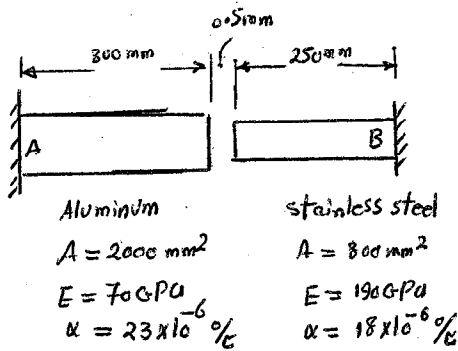 0.5mm
300 mm
250mm
A
B
Aluminum
A = 2000 mm²
E = 70GPa
α = 23x10⁻⁶ °/c
stainless steel
A = 800 mm²
E = 190GPa
α = 18x10⁻⁶ °/c